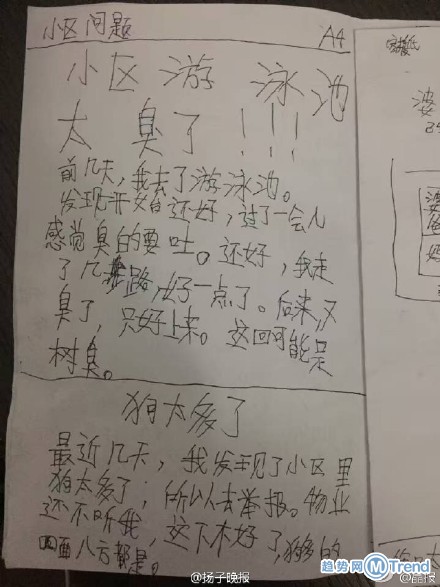 小区问题 A4
小区游泳池
太臭了！！！
前几天，我去了游泳池。
发现开始还好，过了一会儿
感觉臭的要吐。还好，我走
了几步路，好一点了。后来，又
臭了，只好上来。这回可能是
树臭。
狗太多了
最近几天，我发现了小区里
狗太多了，所以去举报。物业
还不听我，这下不好了，狗多的
四面八方都是。
婆
婆
爸
妈
@扬子晚报
趋势网 MTrend